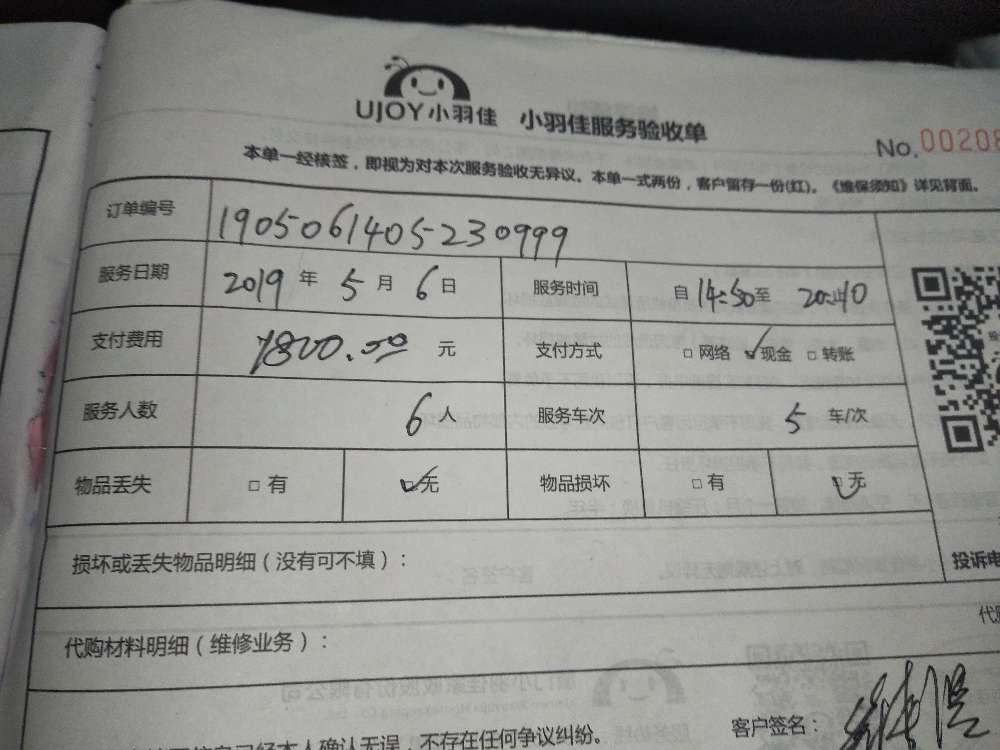 UJOY小羽佳 小羽佳服务验收单
No.00208
本单一经核签，即视为对本次服务验收无异议。本单一式两份，客户留存一份(红)。《维保须知》详见背面。
订单编号 1905061405230999
服务日期 2019年5月6日 服务时间 自14:50至20:40
支付费用 7800.00元 支付方式 □网络 ☑现金 □转账
服务人数 6人 服务车次 5车/次
物品丢失 □有 ☑无 物品损坏 □有 ☑无
损坏或丢失物品明细（没有可不填）：
投诉电
代购材料明细（维修业务）：
代
客户签名：
已经本人确认无误，不存在任何争议纠纷。